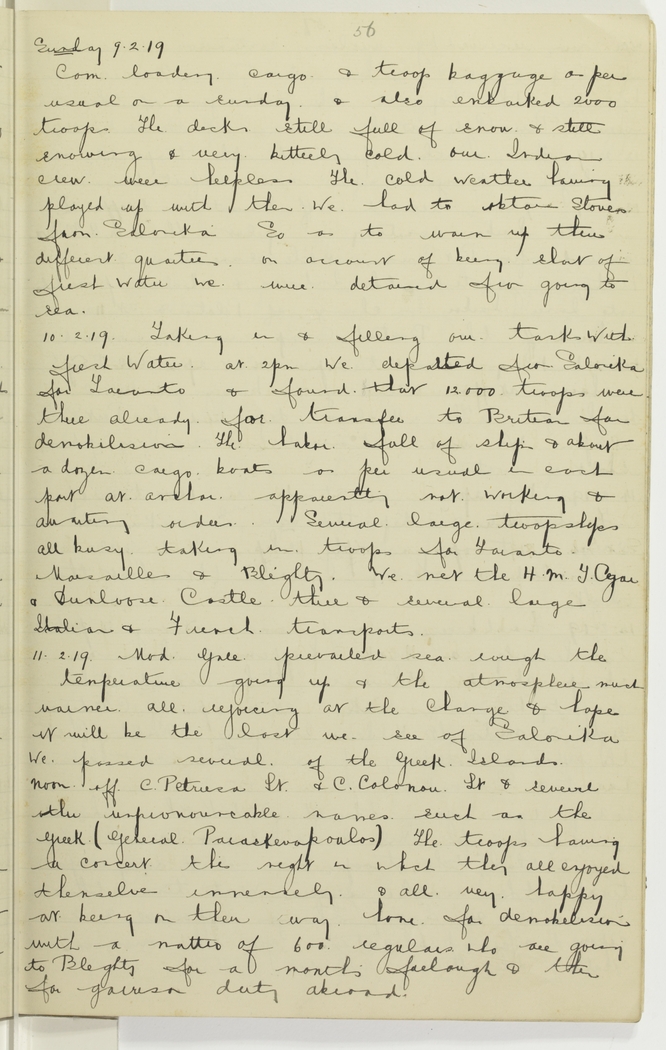 56
Sunday 9.2.19
Com. loading cargo & troop baggage as per
usual on a Sunday. & also embarked 2000
troops The decks still full of snow & still
snowing & very bitterly cold. our Indian
crew were helpless The cold weather having
played up with them. We had to obtain Stoves
from Salonika So as to warm up their
different quarters. on account of being short of
fresh Water We were detained from going to
sea.
10.2.19. Taking in & filling our tanks With
fresh Water. at 2pm We departed from Salonika
for Taranto & found that 12.000 troops were
there already for transfer to Britian for
demobilision. The habor full of ships & about
a dozen cargo boats as per usual in each
port at anchor apparently not working &
awaiting orders. Several large troopships
all busy taking in troops for Taranto.
Marsailles & Blighty. We met the H.M.T. Czar
& Dunloose Castle there & several large
Italian & French transports.
11.2.19. Mod. Gale prevailed sea rough the
temperature going up & the atmosphere much
warmer all rejoicing at the Change & hope
it will be the last we see of Salonika
We passed several of the Greek Islands.
noon off C. Petrusa Lt. & C. Colonou Lt & several
other unpronouncable names such as the
Greek (General Paraskevapoulos) The troops having
a concert this night in which they all enjoyed
themselve immensely. & all very happy
at being on their way home for demobilision
with a matter of 600 regulars who are going
to Blighty for a months furlough & then
for garrison duty abroad.